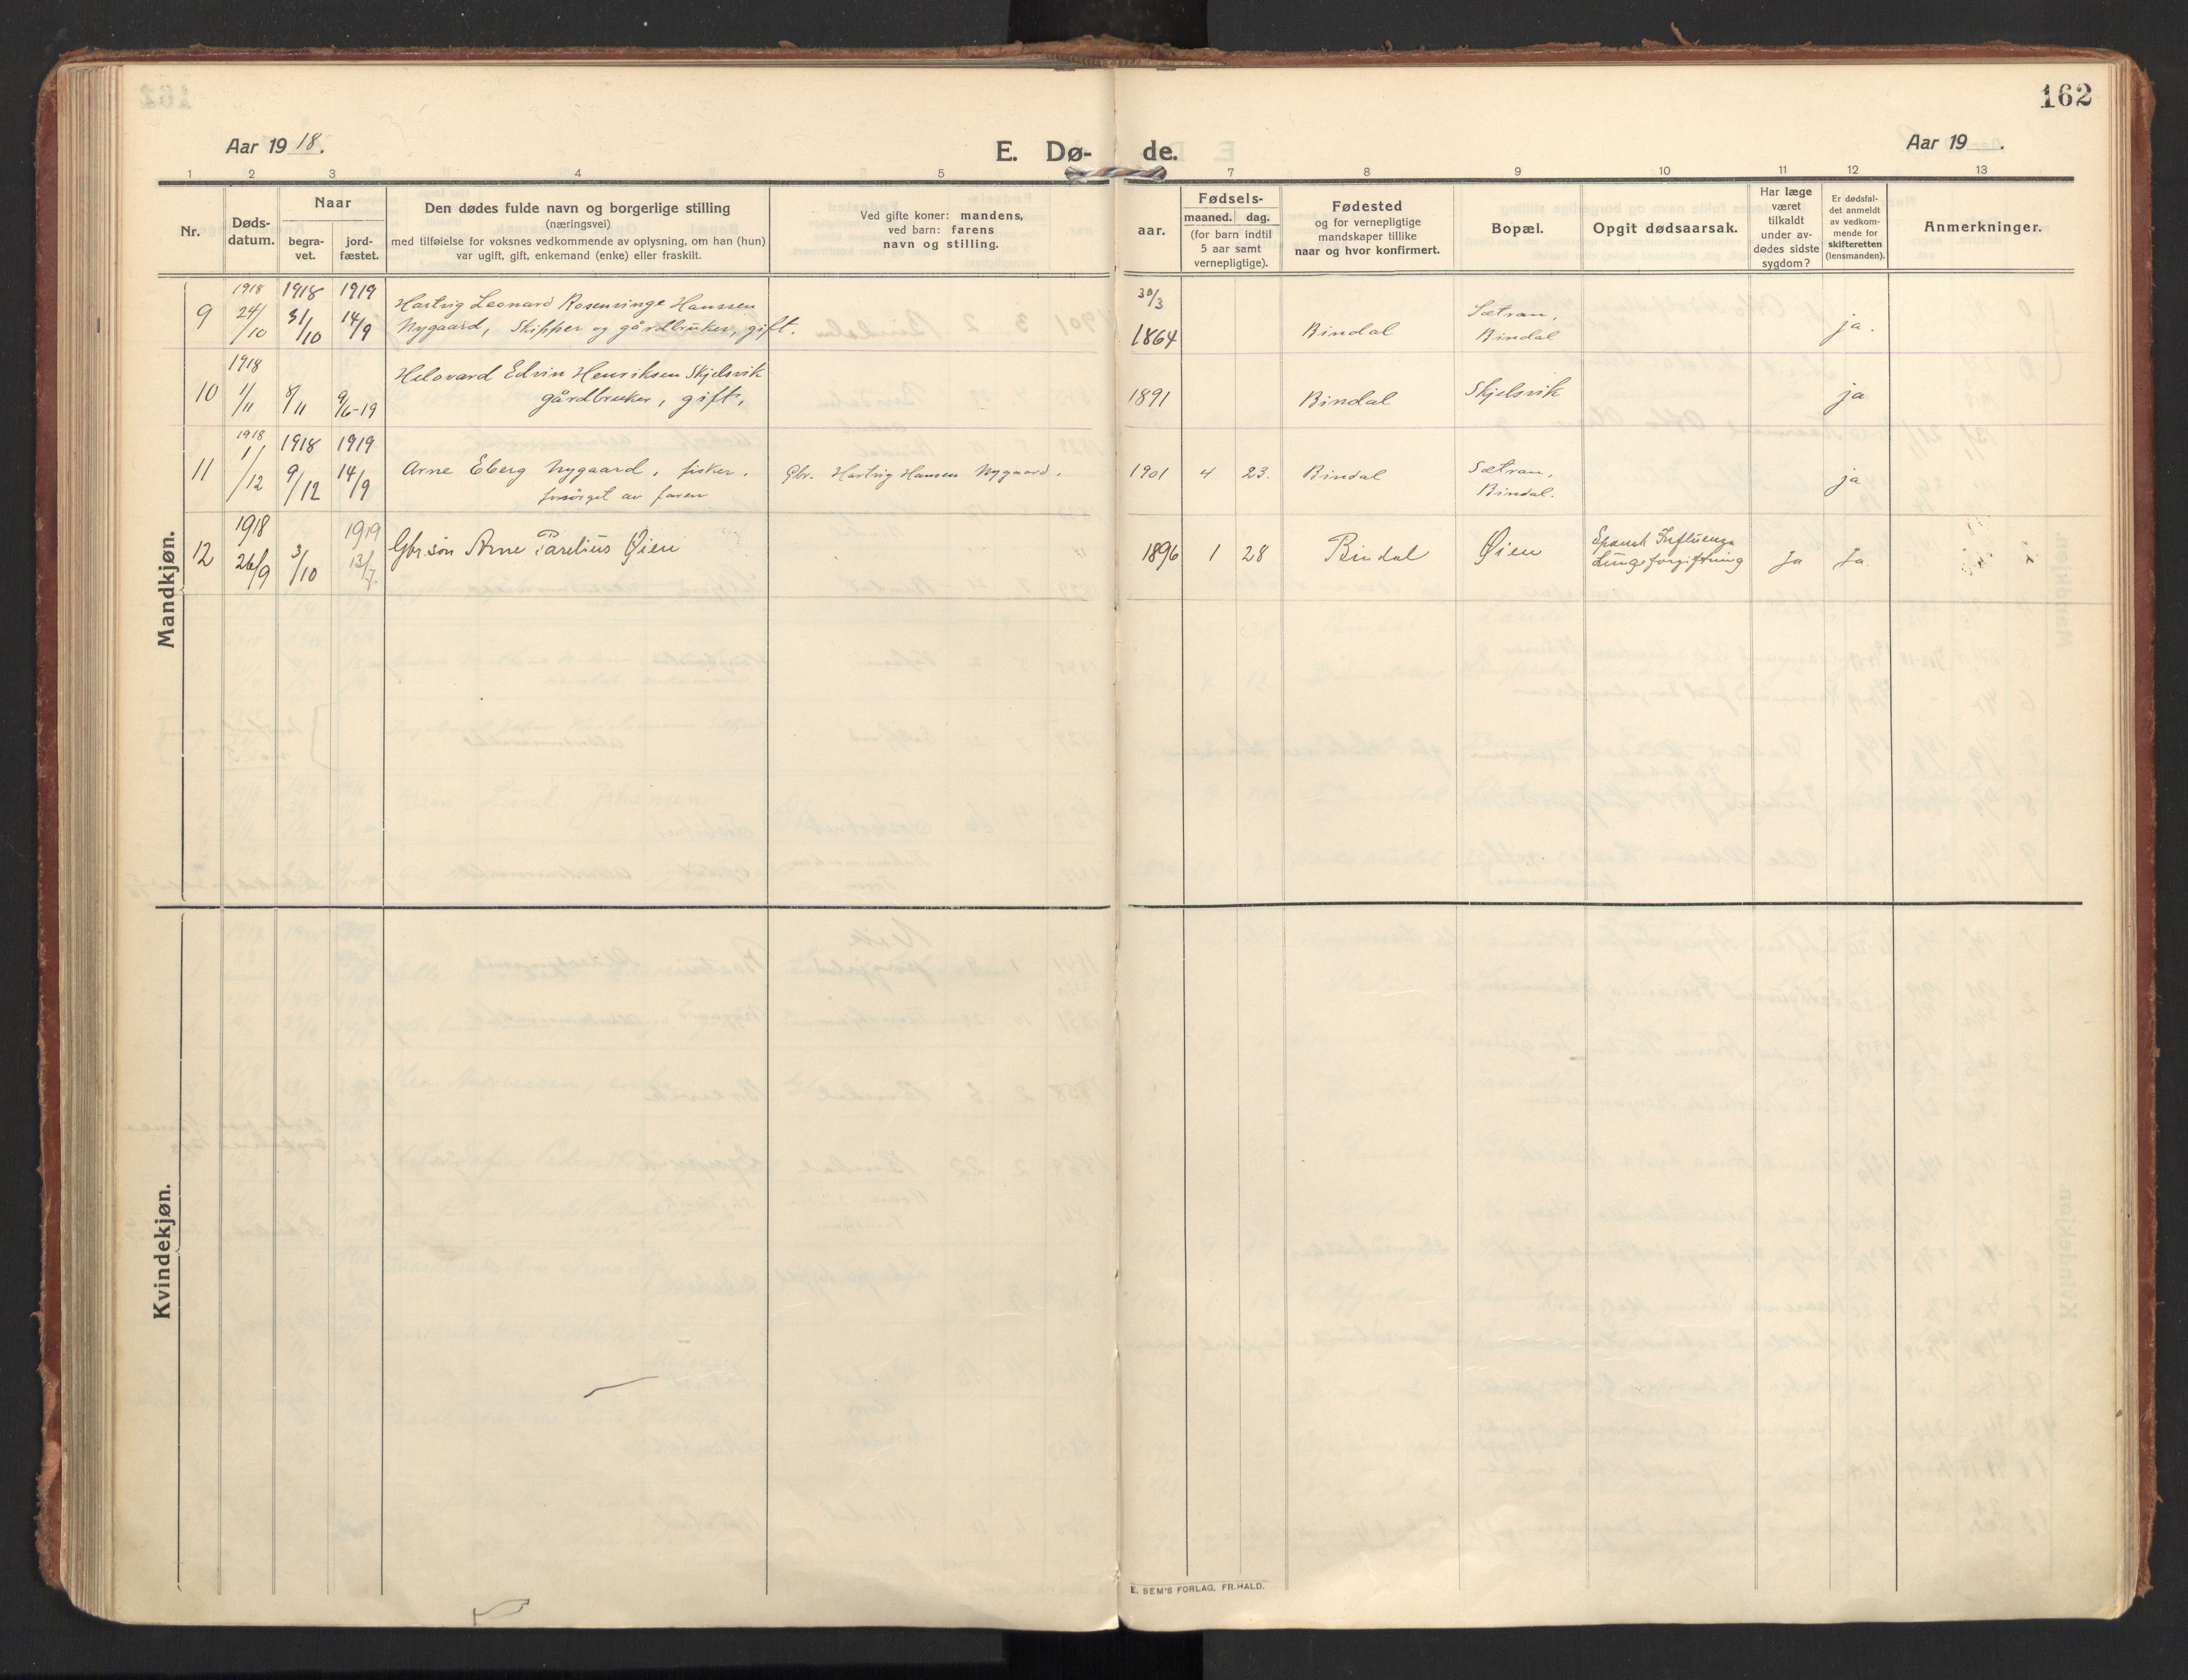 162
Aar 19 18.
E. Dø- de.
Aar 19 .
1 2 3 4 5 7 8 9 10 11 12 13
Nr.
Døds-
datum.
Naar
begra-
vet.
jord-
fæstet.
Den dødes fulde navn og borgerlige stilling
(næringsvei)
med tilføielse for voksnes vedkommende av oplysning, om han (hun)
var ugift, gift, enkemand (enke) eller fraskilt.
Ved gifte koner: mandens,
ved barn: farens
navn og stilling.
aar.
Fødsels-
maaned. dag.
(for barn indtil
5 aar samt
vernepligtige).
Fødested
og for vernepligtige
mandskaper tillike
naar og hvor konfirmert.
Bopæl.
Opgit dødsaarsak.
Har læge
været
tilkaldt
under av-
dødes sidste
sygdom?
Er dødsfal-
det anmeldt
av vedkom-
mende for
skifteretten
(lensmanden).
Anmerkninger.
Mandkjøn.
9 1918 24/10 1918 31/10 1919 14/9
Hartvig Leonard Rosenvinge Hanssen
Nygaard, Skipper og gårdbruker, gift.
30/3
1864 Bindal
Sætran,
Bindal
ja.
10 1918 1/11 8/11 9/6-19
Edvin Henriksen Skjelsvik
gårdbruker, gift,
1891 Bindal Skjelsvik ja
11 1918 1/12 1918 9/12 1919 14/9
Arne Eberg Nygaard, fisker.
forsörget av faren
Gbr. Hartvig Hansen Nygaard.
1901 4 23. Bindal
Sætran,
Bindal.
ja
12 1918 26/9 3/10 1919 13/7.
Gbr. søn Arne Parelius Øien
1896 1 28 Bindal Øien
Spansk Influenza
Lungeforgiftning
Ja Ja.
Kvindekjøn.
E. SEM'S FORLAG, FR. HALD.